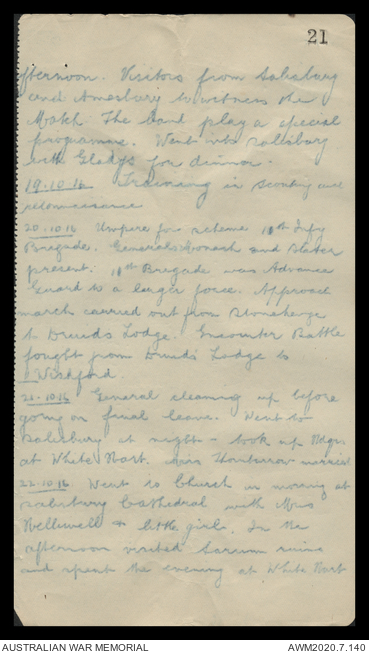 21
fternoon. Visitors from Salisbury
and Amesbury to witness the
Match. The band play a special
programme. Went into Salisbury
with Gladys for dinner.
19.10.16 Training in scouting and
reconnaissance
20.10.16 Umpire for scheme 10th Infy
Brigade. Generals Monash and
present. 10th Brigade was Advance
Guard to a larger force. Approach
march carried out from Stonehenge
to Druids Lodge. Encounter Battle
fought from Druids Lodge to
Wishford.
21.10.16 General cleaning up before
going on final leave. Went to
Salisbury at night - took up
at White Hart. married
22.10.16 Went to Church in morning at
Salisbury Cathedral with Mrs
Helliwell & little girls. In the
afternoon visited Sarum ruins
and spent the evening at White Hart
AUSTRALIAN WAR MEMORIAL
AWM2020.7.140